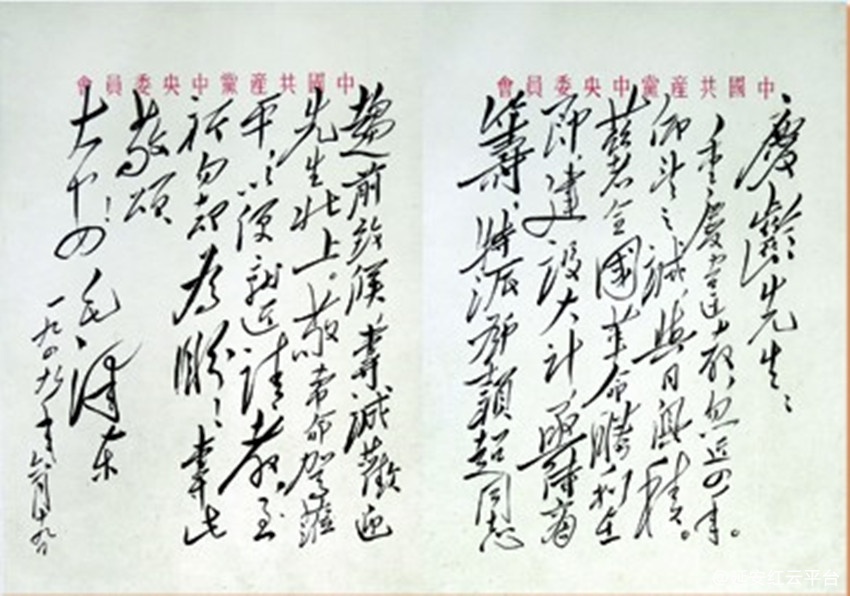 中國共産黨中央委員會
慶齡先生：
重慶違教，忽近四年。
仰望之誠，與日俱積。
兹者全國革命勝利在
即，建設大計，亟待商
籌，特派鄧穎超同志
中國共産黨中央委員會
趨前致候，專誠歡迎
先生北上。敬希命駕蒞
平，以便就近請教，至
祈勿却為盼！專此
敬頌
大安！
毛澤東
一九四九年六月十九日
红云平台